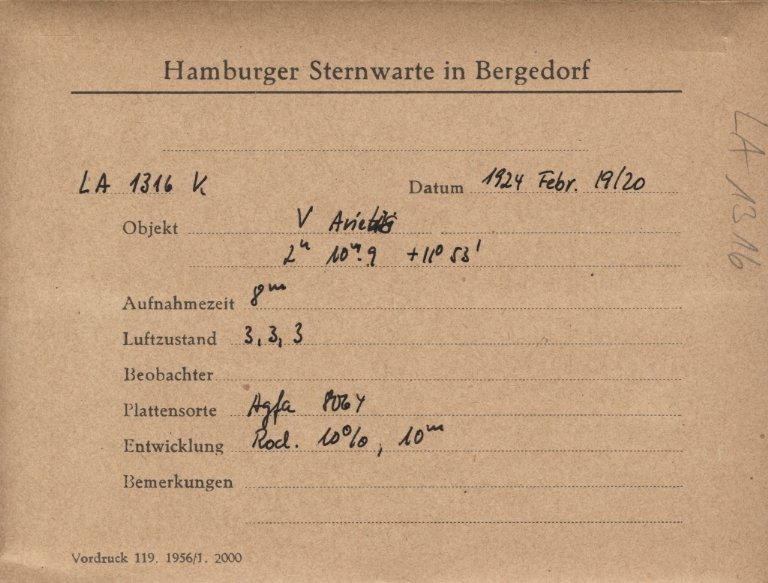 Hamburger Sternwarte in Bergedorf
LA 1316 V.
Datum 1924 Febr. 19/20
Objekt V Arietis
2h 10m.9 +11° 53'
Aufnahmezeit 8m
Luftzustand 3, 3, 3
Beobachter
Plattensorte Agfa 8064
Entwicklung Rod. 10%, 10m
Bemerkungen
Vordruck 119. 1956/1. 2000
LA 1316